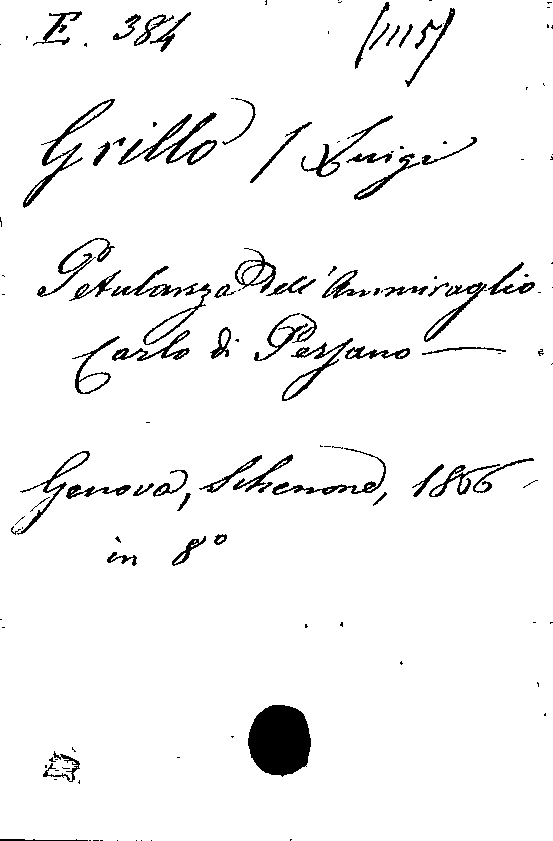 E. 384 (1115)
Grillo / Luigi
Petulanza Dell'Ammiraglio
Carlo di Persano —
Genova, Schenone, 1866
in 8º